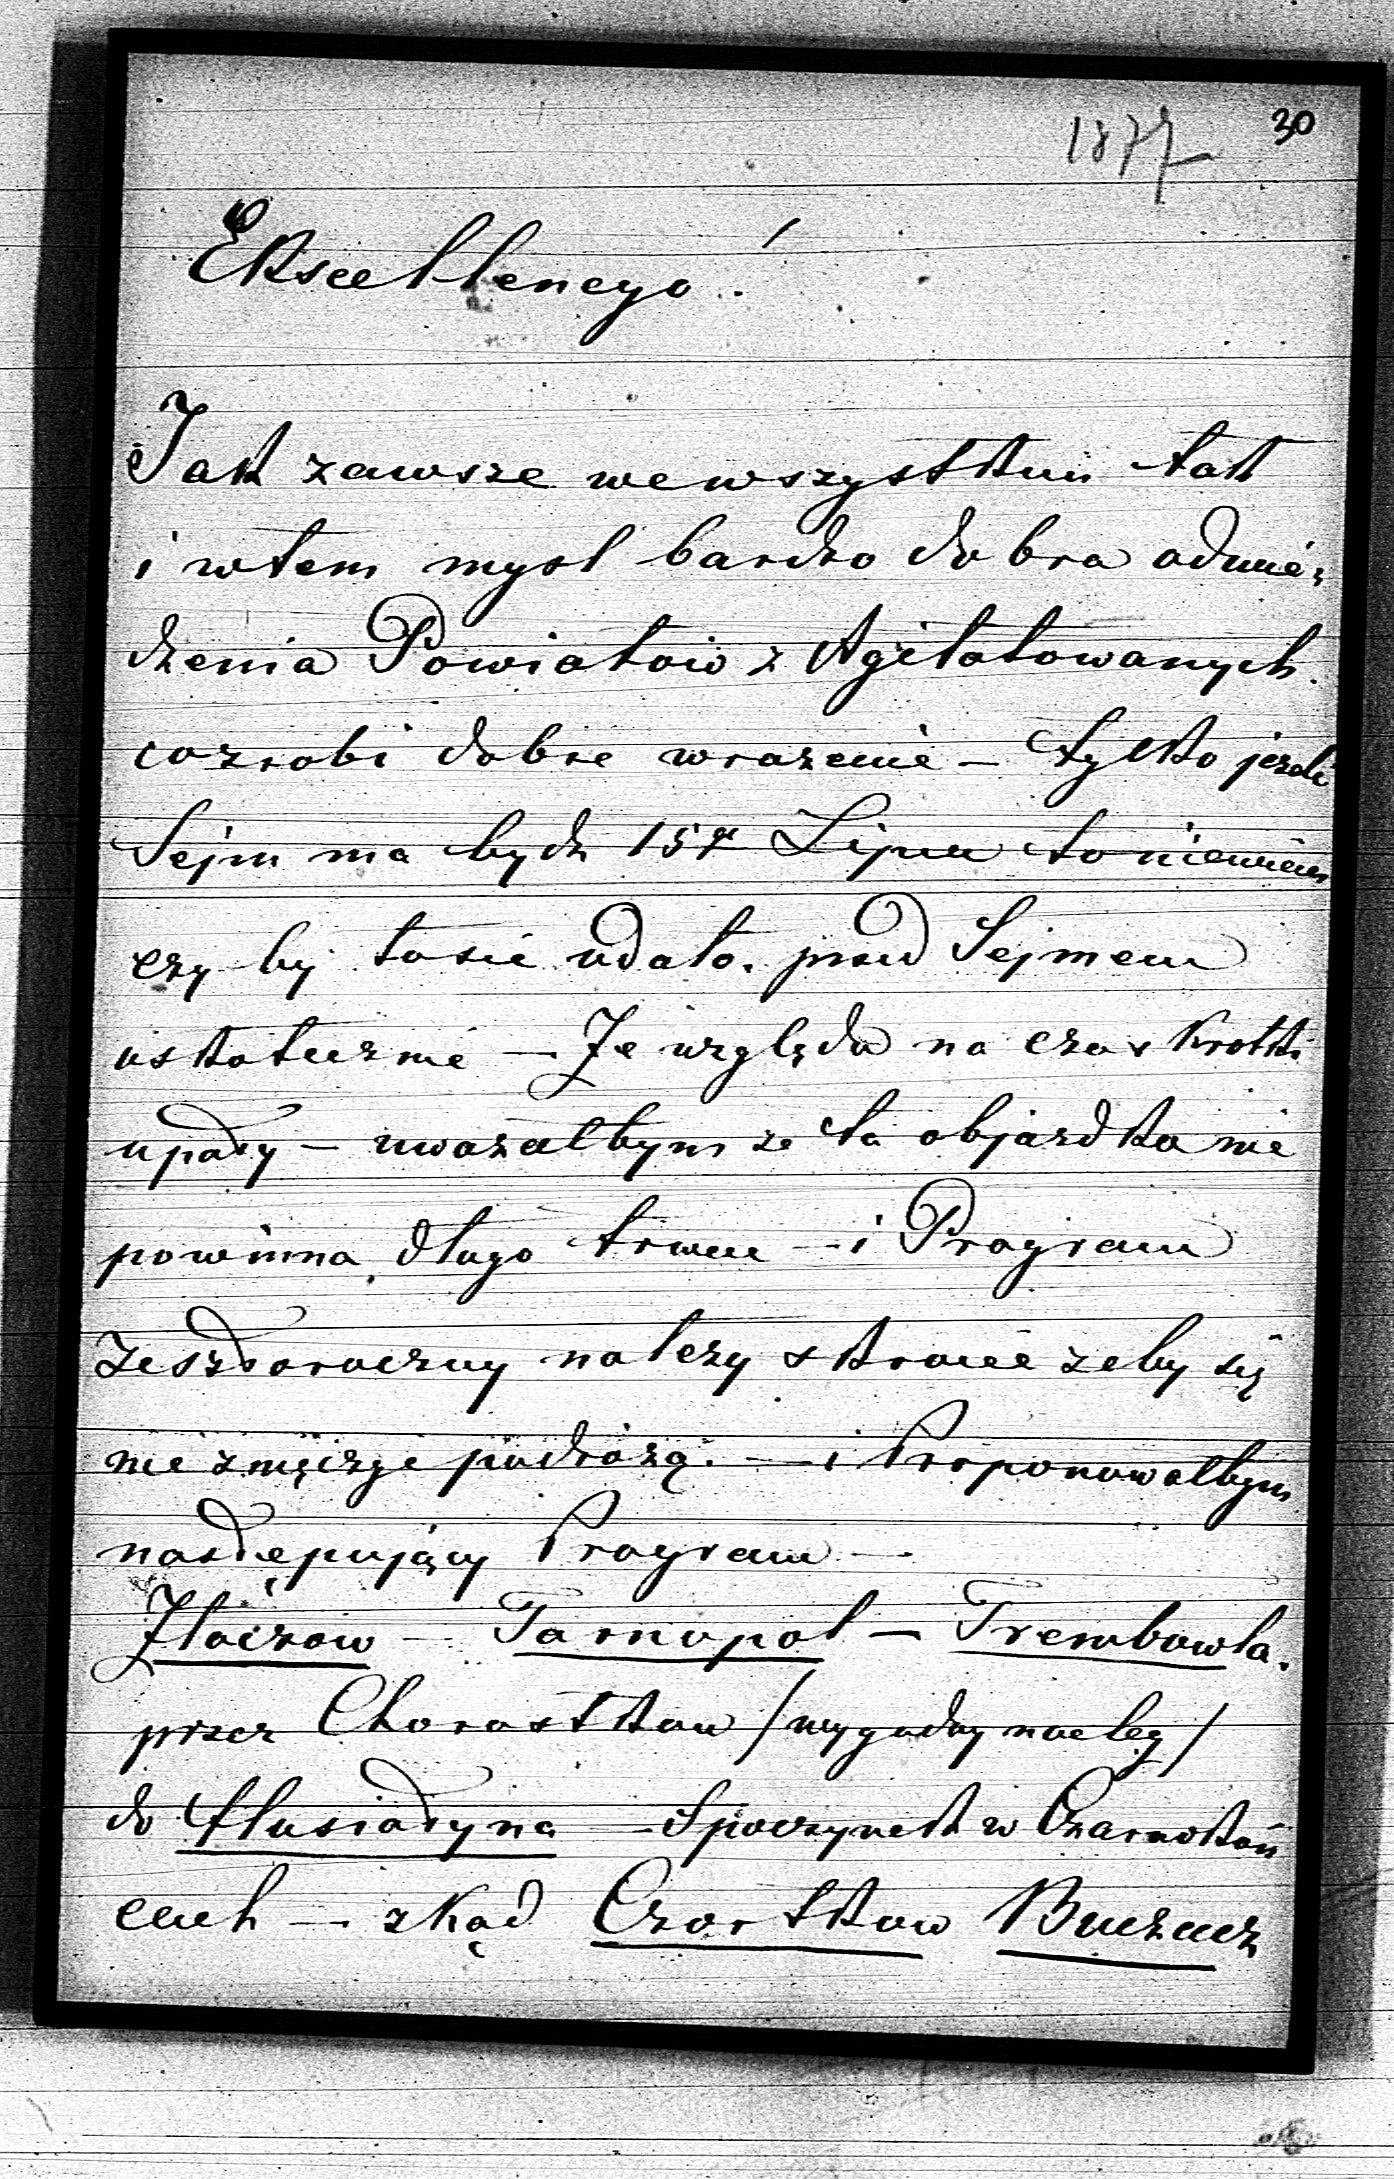 1877 30
Ekscellencyo!
Jak zawsze we wszystkim tak
i w tem mysl bardzo dobra odwie-
dzenia Powiatow z Agitatowanych
co zrobi dobre wrazenie – tylko jezeli
Sejm ma bydz 15go Lipca to niewiem
czy by tosie udało. przed Sejmem
uskutecznić – Ze względu na czas krotki
upały – uwazałbym ze ta objazdka nie
powinna długo trwac – i Program
zeszłoroczny nalezy skrócić zeby się
nie zmęczyć podróżą. – i Proponowałbym
nastepujący Program –
Złoczow – Tarnopol – Trembowla.
przez Chorostkow /wygodny nocleg/
do Husiatyna – Spoczynek w Czarnokoń
cach – zkąd Czortkow Buczacz